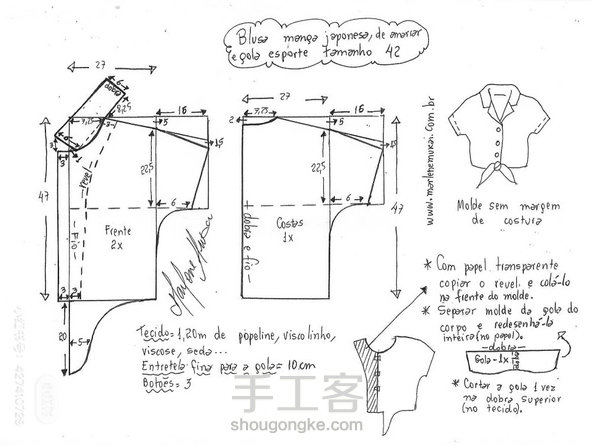 Blusa manga japonesa, de amarrar
e gola esporte tamanho 42
27
6
dobra
8,25
7,25
5
16
15
3
47
revel
22,5
6
Fio
Frente
2x
3
3
20
5
27
7,25
2
5
16
15
22,5
6
47
dobra e fio
Costas
1x
Marlene Mukai
www.marlenemukai.com.br
Molde sem margem
de costura
* Com papel transparente
copiar o revel e colá-lo
na frente do molde.
* Separar molde da gola do
corpo e redesenhá-la
inteira (no papel).
dobra
Gola - 1x
* Cortar a gola 1 vez
na dobra superior
(no tecido).
Tecido= 1,20m de popeline, viscolinho,
viscose, seda...
Entretela fina para a gola= 10cm
Botões= 3
手工客
shougongke.com